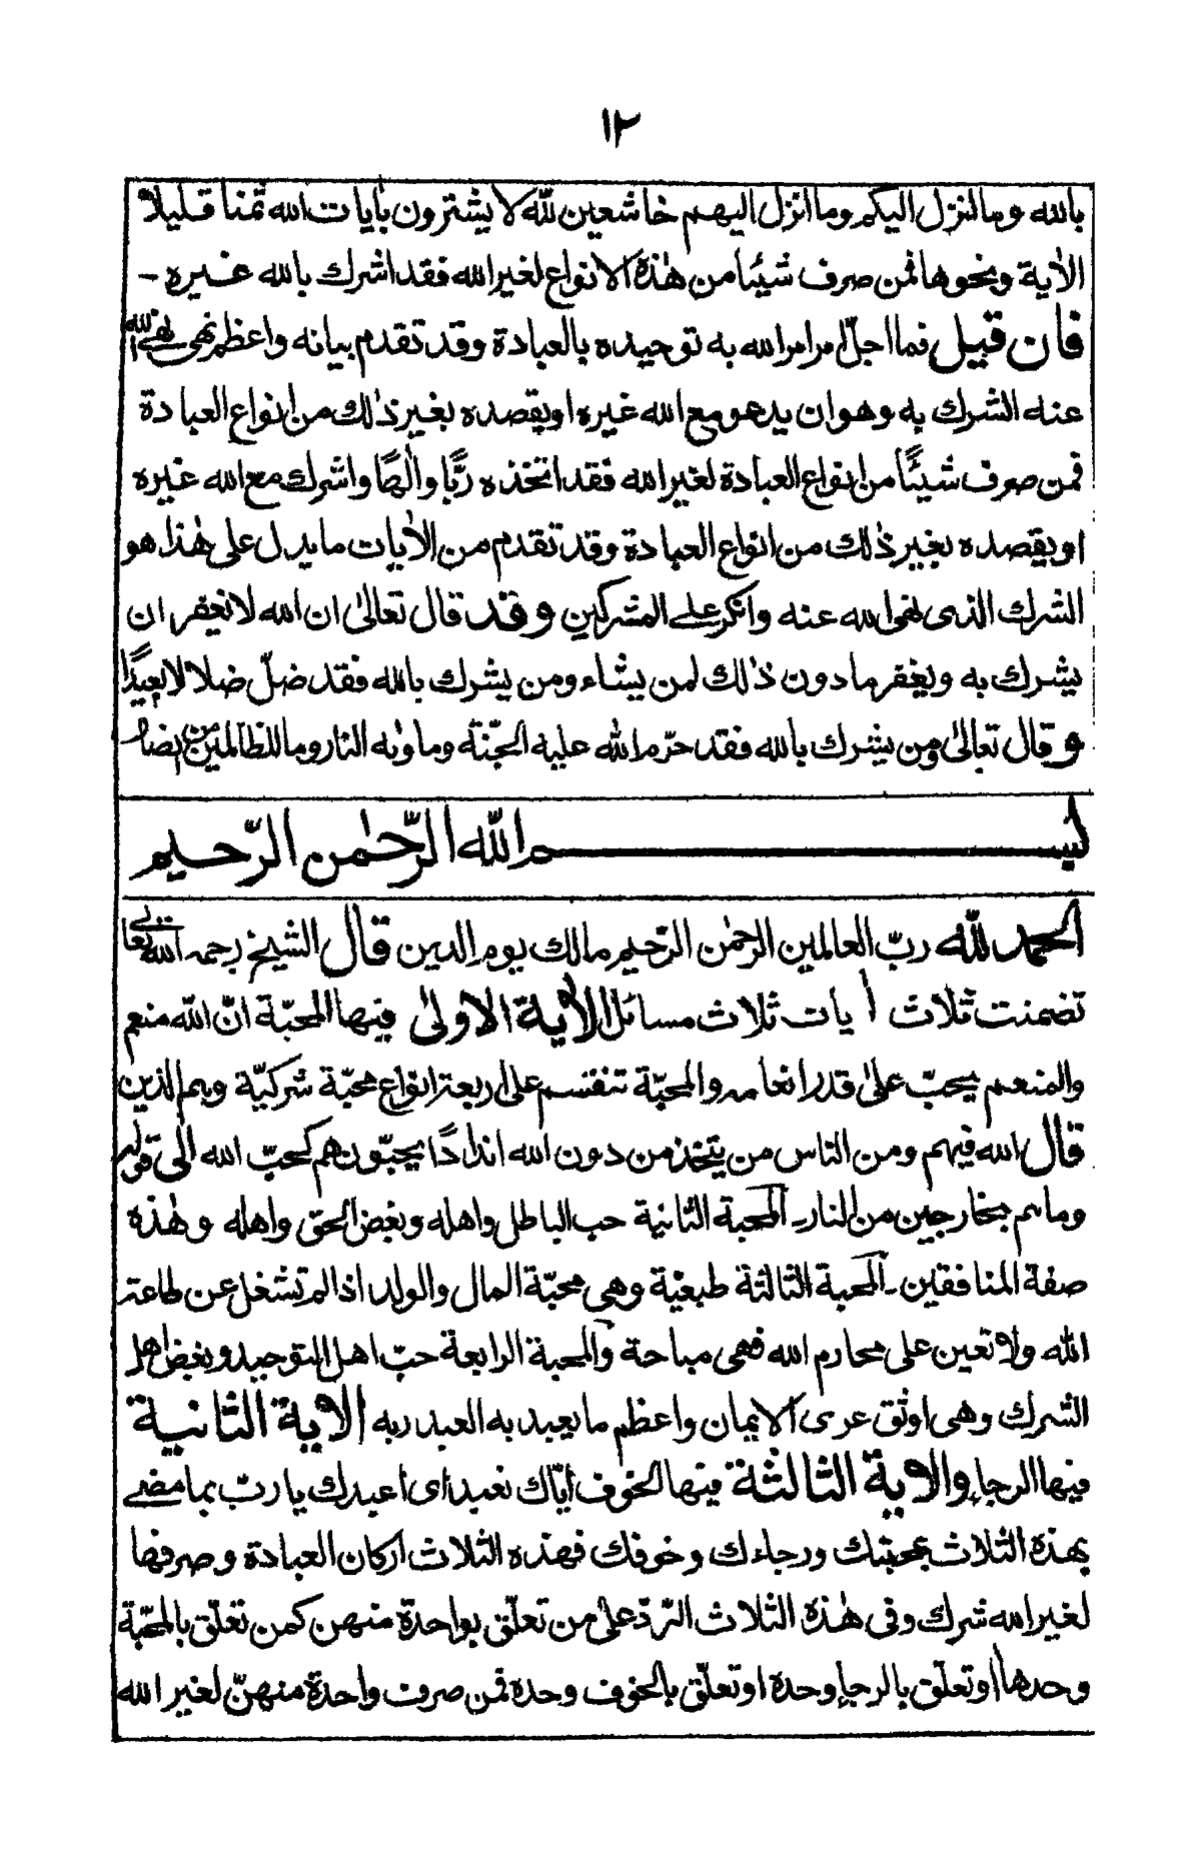 ١٢
بالله وما انزل اليكم وما انزل اليهم خاشعين لله لا يشترون بأيات الله ثمنا قليلا
الأية ونحوها فمن صرف شيئا من هذه الانواع لغير الله فقد اشرك بالله غيره -
فان قيل فما اجلّ امر امر الله به توحيده بالعبادة وقد تقدم بيانه واعظم نهي نهى الله
عنه الشرك به وهو ان يدعو مع الله غيره او يقصده بغير ذلك من انواع العبادة
فمن صرف شيئًا من انواع العبادة لغير الله فقد اتخذه ربًّا والٰهًا واشرك مع الله غيره
او يقصده بغير ذٰلك من انواع العبادة وقد تقدم من الأيات ما يدل على هٰذا هو
الشرك الذى نهى الله عنه وانكر على المشركين وقد قال تعالىٰ ان الله لا يغفر ان
يشرك به ويغفر ما دون ذٰلك لمن يشاء ومن يشرك بالله فقد ضلّ ضلالا بعيدًا
وقال تعالىٰ ومن يشرك بالله فقد حرّم الله عليه الجنّة وماوٰىه النار وما للظالمين من انصار
بسم الله الرّحمٰن الرّحيم
الحمد للّٰه ربّ العالمين الرحمٰن الرّحيم مالك يوم الدين قال الشيخ رحمه الله تعالى
تضمنت ثلاث أيات ثلاث مسائل الأية الاولىٰ فيها المحبّة انّ الله منعم
والمنعم يحبّ علىٰ قدر انعامه والمحبّة تنقسم على اربعة انواع محبّة شركيّة وهم الذين
قال الله فيهم ومن الناس من يتخذ من دون الله اندادًا يحبّونهم كحبّ الله الىٰ قوله
وما هم بخارجين من النار - المحبة الثانية حب الباطل واهله وبغض الحق واهله وهٰذه
صفة المنافقين - المحبة الثالثة طبعية وهي محبّة المال والولد اذا لم تشغل عن طاعة
الله ولا تعين على محارم الله فهى مباحة والمحبة الرابعة حبّ اهل التوحيد وبغض اهل
الشرك وهى اوثق عرى الايمان واعظم ما يعبد به العبد ربه الأية الثانية
فيها الرجاء والأية الثالثة فيها الخوف اياك نعبد اى اعبدك يا ربّ بما مضى
بهذه الثلاث بمحبتك ورجاءك وخوفك فهذه الثلاث اركان العبادة وصرفها
لغير الله شرك وفى هٰذه الثلاث الرّد علىٰ من تعلّق بواحدة منهن كمن تعلّق بالمحبّة
وحدها او تعلّق بالرجاء وحده او تعلّق بالخوف وحده فمن صرف واحدة منهنّ لغير الله